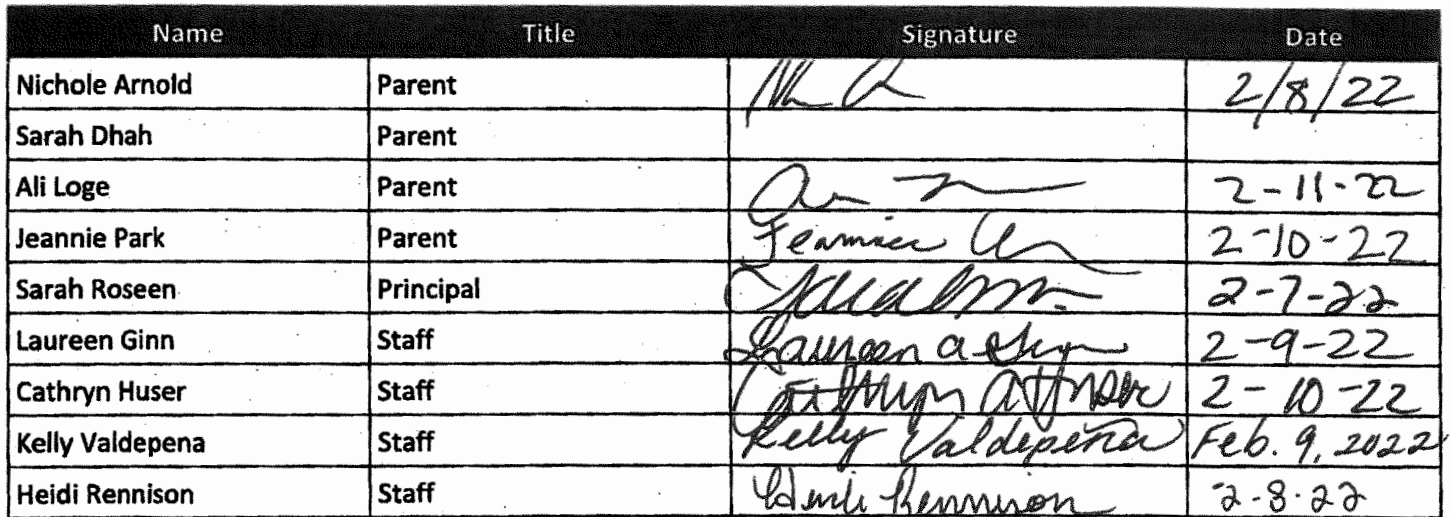 Name Title Signature Date
Nichole Arnold Parent 2/8/22
Sarah Dhah Parent
Ali Loge Parent 2-11-22
Jeannie Park Parent 2-10-22
Sarah Roseen Principal 2-7-22
Laureen Ginn Staff Laureen a 2-9-22
Cathryn Huser Staff Cathryn A Huser 2-10-22
Kelly Valdepena Staff Kelly Valdepeña Feb. 9, 2022
Heidi Rennison Staff Heidi Rennison 2-8-22